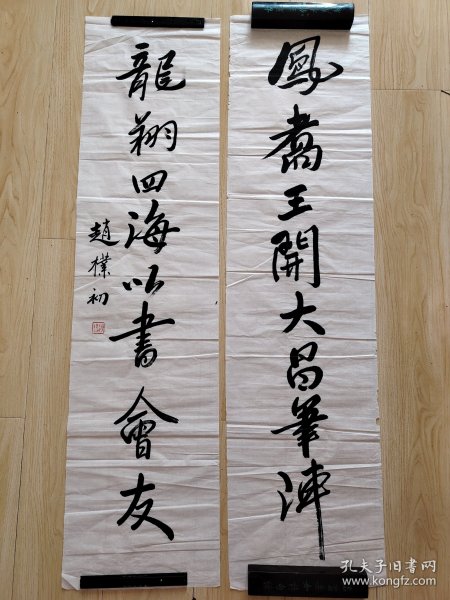 鳳翥王開大昌筆陣
龍翔四海以書會友
趙樸初
孔夫子旧书网
www.kongfz.com